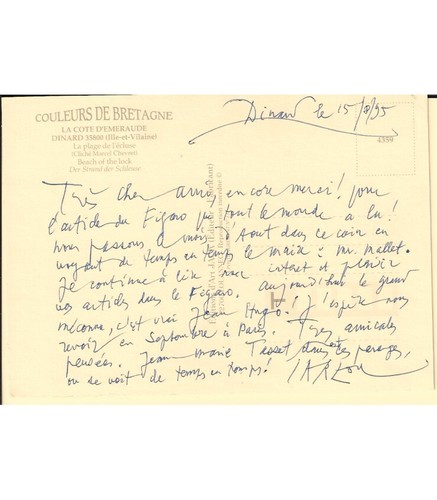 COULEURS DE BRETAGNE
LA COTE D'EMERAUDE
DINARD 35800 (Ille-et-Vilaine)
La plage de l'écluse
(Cliché Marcel Chevret)
Beach of the lock
Der Strand der Schleuse
Dinard le 15/8/95
4359
Très cher ami, encore merci! pour
l'article du Figaro que tout le monde a lu!
nous passons à août dans ce coin en
voyant de temps en temps le maire: mr. Mallet.
Je continue à lire avec intérêt et plaisir
vos articles dans le Figaro. aujourd'hui le grand
méconnu, c'est vrai Jean Hugo! J'espère vous
revoir en Septembre à Paris. Très amicales
pensées. Jean Marie dans les parages,
on se voit de temps en temps!